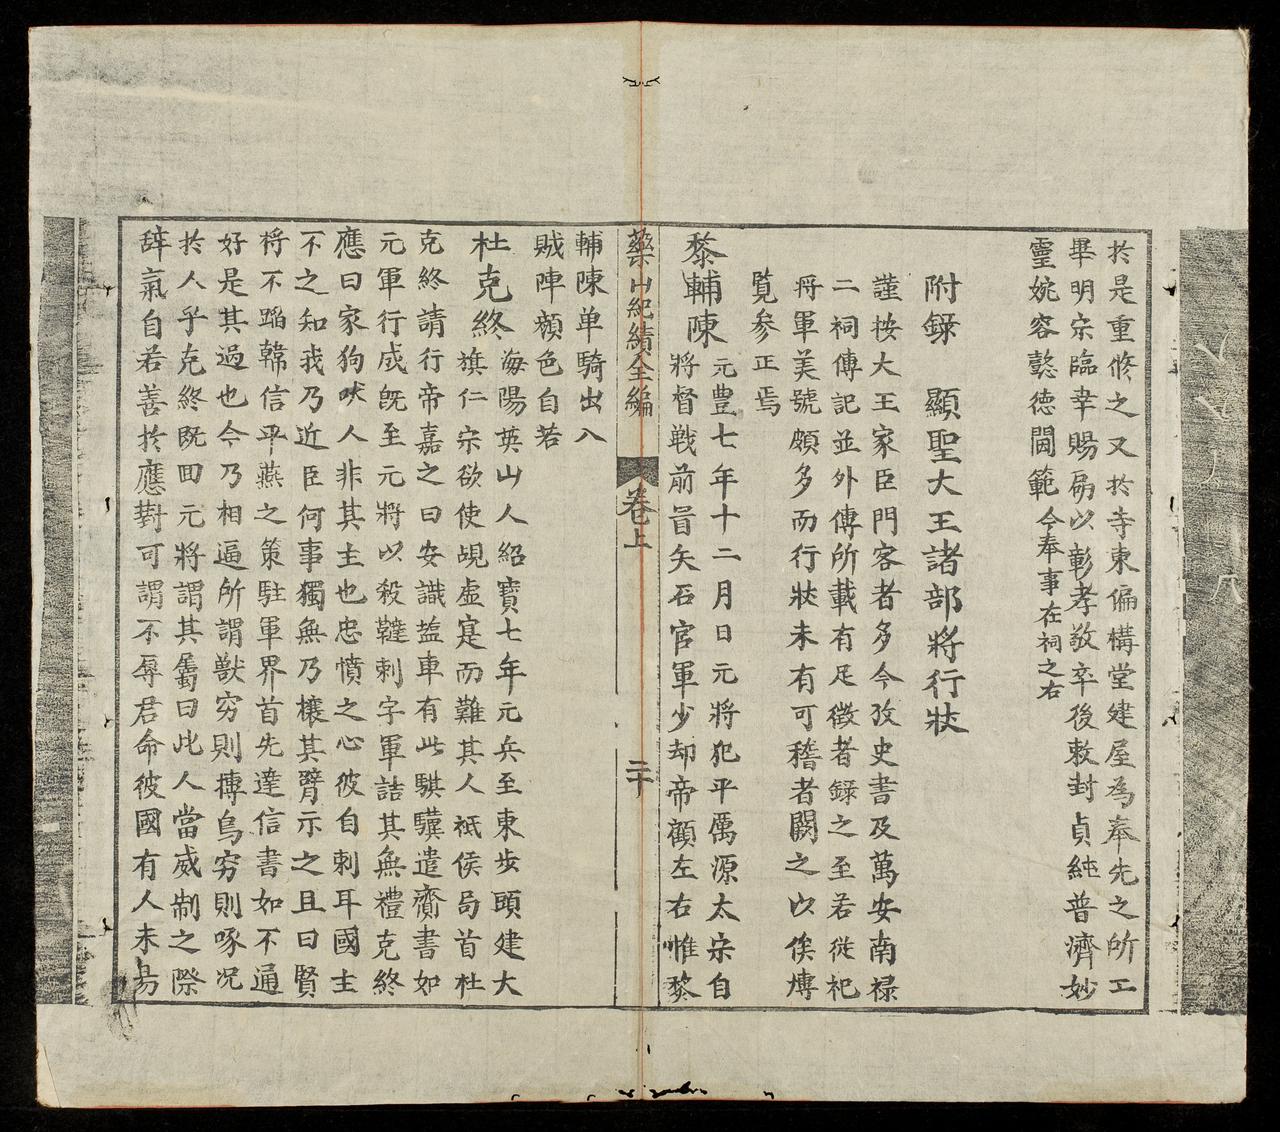 於是重修之又於寺東偏構堂建屋為奉先之所工
畢明宗臨幸賜扁以彰孝敬卒後敕封貞純普濟妙
靈婉容懿德閫範今奉事在祠之右
附録　顯聖大王諸部將行狀
謹按大王家臣門客者多今攷史書及萬安南禄
二祠傳記並外傳所載有足徵者録之至若從祀
将軍美號頗多而行狀未有可稽者闕之以俟博
覧参正焉
黎輔陳
元豊七年十二月日元將犯平厲源太宗自
將督戦前冒矢石官軍少却帝顧左右惟黎
藥山紀績全編　卷上　二十
輔陳单騎出入
賊陣顔色自若
杜克終
海陽英山人紹寶七年元兵至東步頭建大
旗仁宗欲使覘虛寔而難其人祗侯局首杜
克終請行帝嘉之曰安識塩車有此騏驥遣齎書如
元軍行成旣至元將以殺韃刺字軍詰其無禮克終
應曰家狗吠人非其主也忠憤之心彼自刺耳國主
不之知我乃近臣何事獨無乃攘其臂示之且曰賢
将不蹈韓信平燕之策駐軍界首先達信書如不通
好是其過也今乃相逼所謂獸穷則搏鳥穷則啄况
於人乎克終既囬元將謂其屬曰此人當威制之際
辞氣自若善於應對可謂不辱君命彼國有人未易